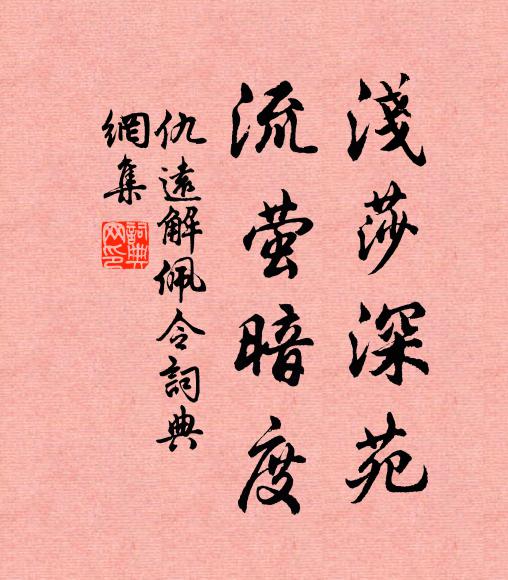 淺莎深苑
流萤暗度
仇遠解佩令詞典
網集
詞典
网印